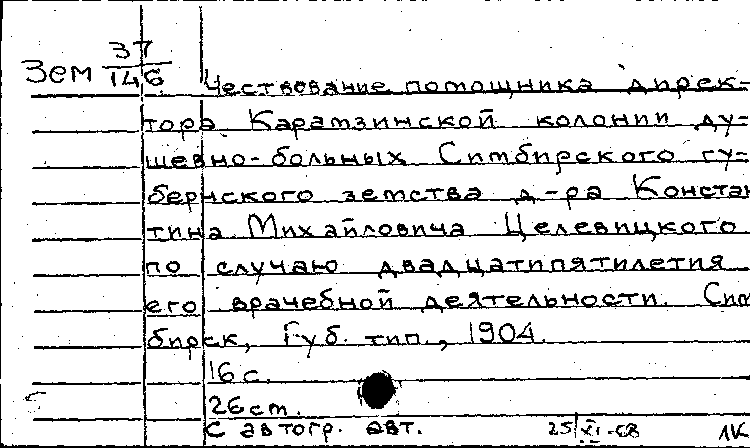 Зем 37/146
Чествование помощника дирек-
тора Карамзинской колонии ду-
шевно-больных Симбирского гу-
бернского земства д-ра Констан
тина Михайловича Целевицкого
по случаю двадцатипятилетия
его врачебной деятельности. Сим
бирск, Губ. тип., 1904.
16 с.
26 см.
С автогр. авт. 25/XI-68 1К